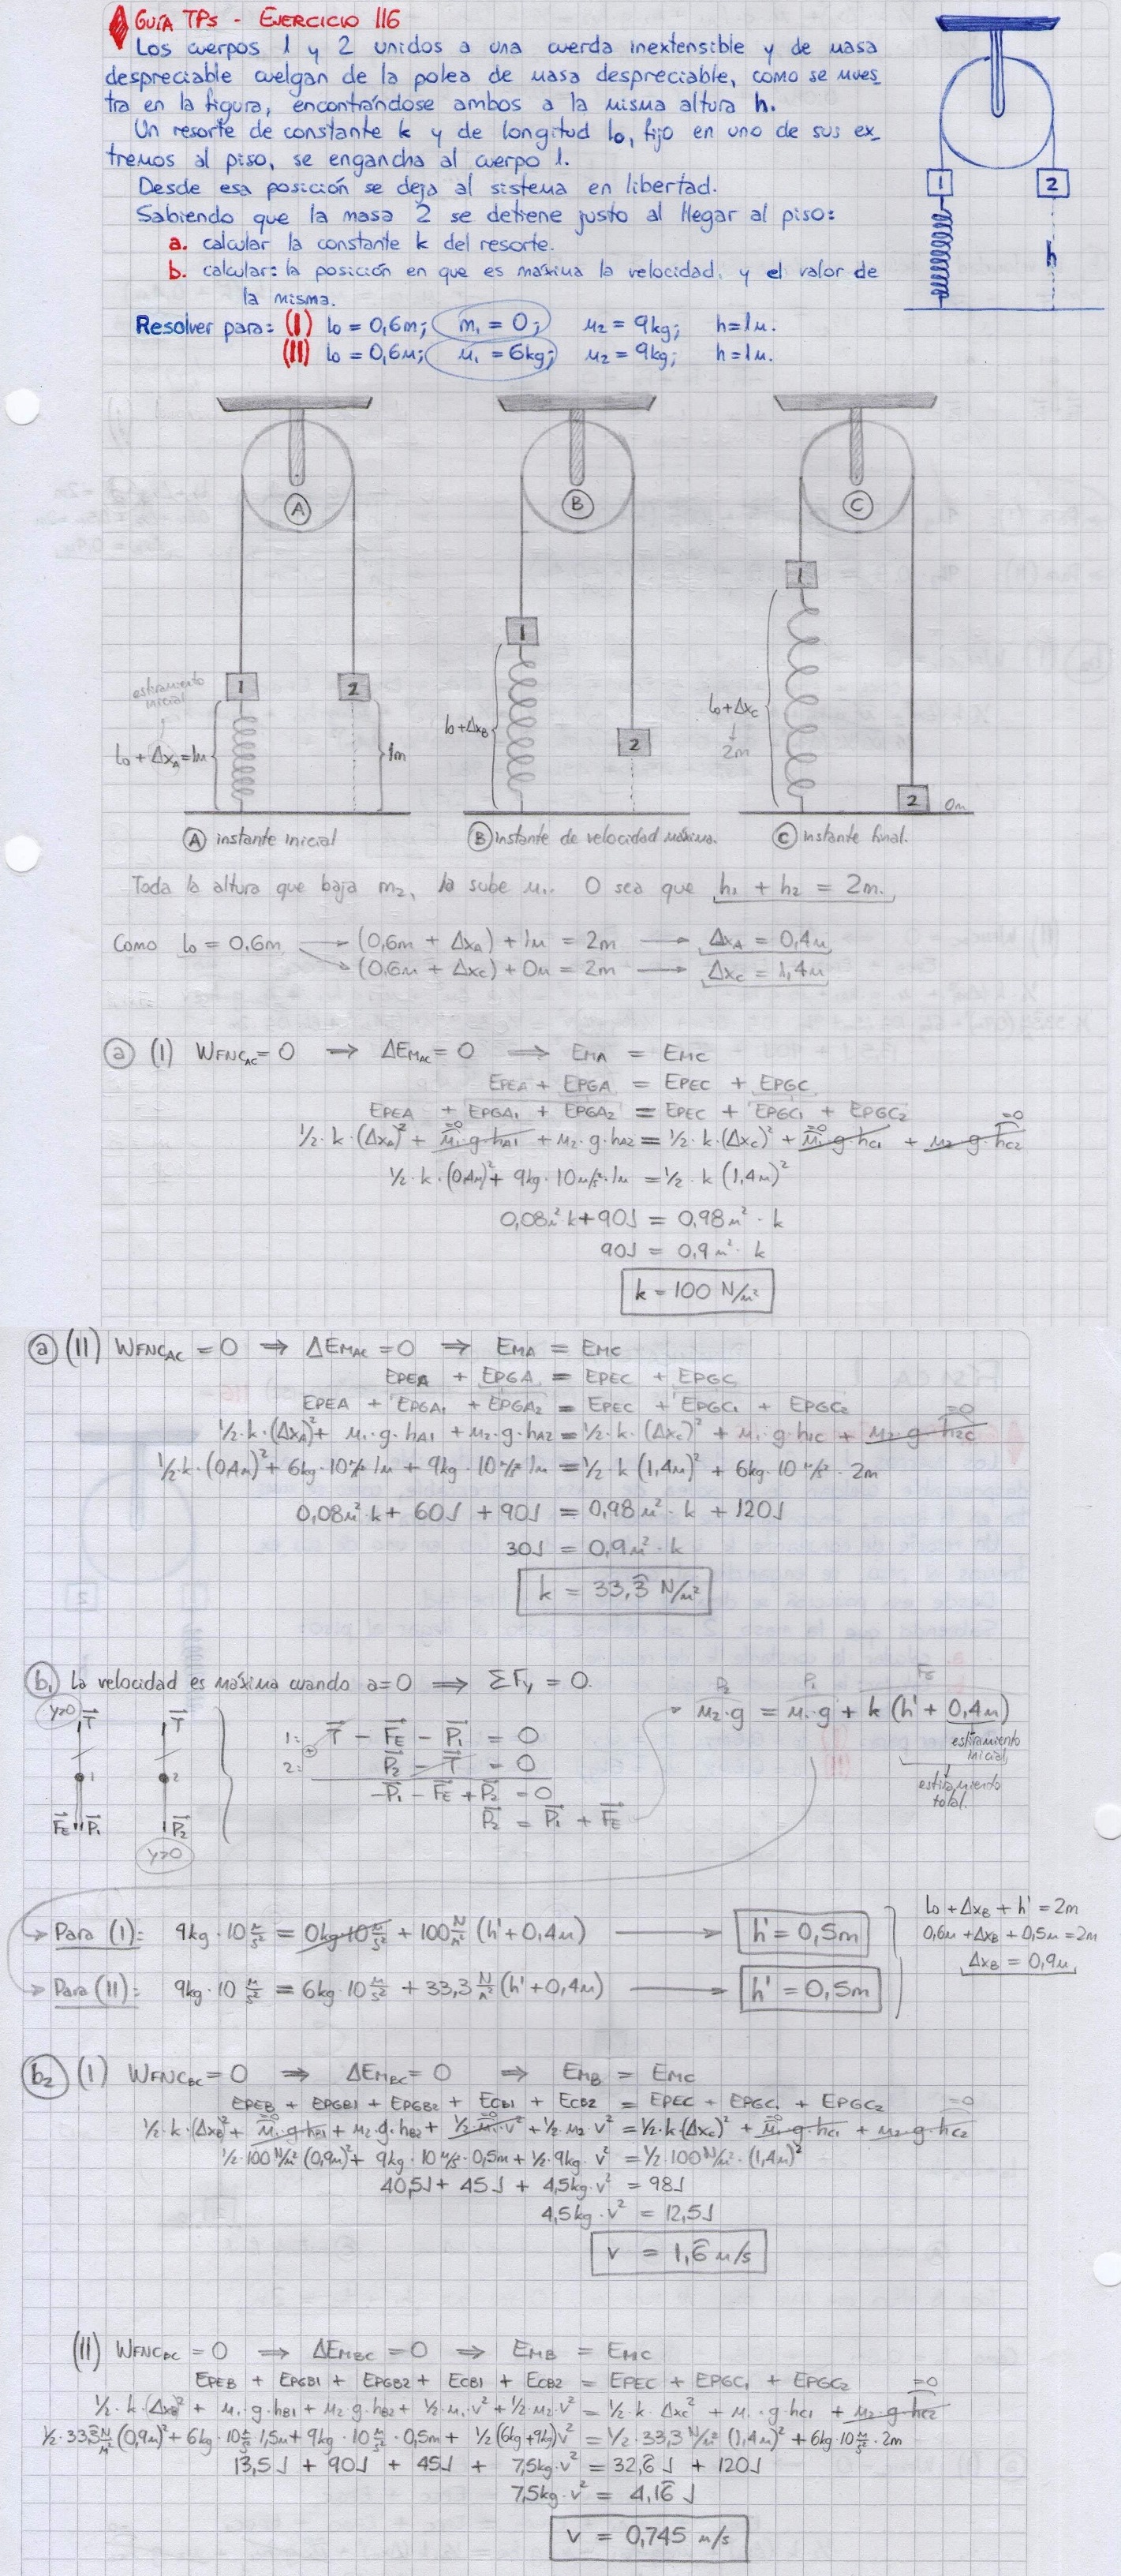 GUÍA TPs - EJERCICIO 116
Los cuerpos 1 y 2 unidos a una cuerda inextensible y de masa
despreciable cuelgan de la polea de masa despreciable, como se mues_
tra en la figura, encontrándose ambos a la misma altura h.
Un resorte de constante k y de longitud l₀, fijo en uno de sus ex_
tremos al piso, se engancha al cuerpo 1.
Desde esa posición se deja al sistema en libertad.
Sabiendo que la masa 2 se detiene justo al llegar al piso:
a. calcular la constante k del resorte.
b. calcular: la posición en que es máxima la velocidad, y el valor de
la misma.
Resolver para: (I) l₀ = 0,6m; m₁ = 0; m₂ = 9kg; h = 1m.
(II) l₀ = 0,6m; m₁ = 6kg; m₂ = 9kg; h = 1m.
1 2
h
A B C
1
1
estiramiento
inicial
1 2
l₀ + Δx_A = 1m
1m
l₀ + Δx_B
2
l₀ + Δx_C
2m
2 0m
A instante inicial
B instante de velocidad máxima.
C instante final.
Toda la altura que baja m₂, la sube m₁. O sea que h₁ + h₂ = 2m.
Como l₀ = 0,6m → (0,6m + Δx_A) + 1m = 2m → Δx_A = 0,4m
(0,6m + Δx_C) + 0m = 2m → Δx_C = 1,4m
a (I) W_FNC_AC = 0 ⇒ ΔE_M_AC = 0 ⇒ E_MA = E_MC
E_PEA + E_PGA = E_PEC + E_PGC
E_PEA + E_PGA1 + E_PGA2 = E_PEC + E_PGC1 + E_PGC2
½·k·(Δx_A)² + m₁·g·h_A1 (=0) + m₂·g·h_A2 = ½·k·(Δx_C)² + m₁·g·h_C1 (=0) + m₂·g·h_C2 (=0)
½·k·(0,4m)² + 9kg·10m/s²·1m = ½·k(1,4m)²
0,08m²·k + 90J = 0,98m²·k
90J = 0,9m²·k
k = 100 N/m²
a (II) W_FNC_AC = 0 ⇒ ΔE_M_AC = 0 ⇒ E_MA = E_MC
E_PEA + E_PGA = E_PEC + E_PGC
E_PEA + E_PGA1 + E_PGA2 = E_PEC + E_PGC1 + E_PGC2
½·k·(Δx_A)² + m₁·g·h_A1 + m₂·g·h_A2 = ½·k·(Δx_C)² + m₁·g·h_1C + m₂·g·h_2C (=0)
½·k·(0,4m)² + 6kg·10m/s²·1m + 9kg·10m/s²·1m = ½·k(1,4m)² + 6kg·10m/s²·2m
0,08m²·k + 60J + 90J = 0,98m²·k + 120J
30J = 0,9m²·k
k = 33,3̂ N/m²
b₁ La velocidad es máxima cuando a=0 ⇒ ΣFy = 0.
y>0 T T
1: T - F_E - P₁ = 0
2: P₂ - T = 0
-P₁ - F_E + P₂ = 0
P₂ = P₁ + F_E
1 2
F_E P₁ P₂
y>0
P₂ P₁ F_E
m₂·g = m₁·g + k(h' + 0,4m)
estiramiento
inicial
estiramiento
total.
Para (I): 9kg·10m/s² = 0kg·10m/s² + 100N/m²(h' + 0,4m) → h' = 0,5m
Para (II): 9kg·10m/s² = 6kg·10m/s² + 33,3N/m²(h' + 0,4m) → h' = 0,5m
l₀ + Δx_B + h' = 2m
0,6m + Δx_B + 0,5m = 2m
Δx_B = 0,9m
b₂ (I) W_FNC_BC = 0 ⇒ ΔE_M_BC = 0 ⇒ E_MB = E_MC
E_PEB + E_PGB1 + E_PGB2 + E_CB1 + E_CB2 = E_PEC + E_PGC1 + E_PGC2
½·k·(Δx_B)² + m₁·g·h_B1 (=0) + m₂·g·h_B2 + ½·m₁·v² (=0) + ½·m₂·v² = ½·k(Δx_C)² + m₁·g·h_C1 (=0) + m₂·g·h_C2 (=0)
½·100N/m²(0,9m)² + 9kg·10m/s²·0,5m + ½·9kg·v² = ½·100N/m²·(1,4m)²
40,5J + 45J + 4,5kg·v² = 98J
4,5kg·v² = 12,5J
v = 1,6̂ m/s
(II) W_FNC_BC = 0 ⇒ ΔE_M_BC = 0 ⇒ E_MB = E_MC
E_PEB + E_PGB1 + E_PGB2 + E_CB1 + E_CB2 = E_PEC + E_PGC1 + E_PGC2
½·k·(Δx_B)² + m₁·g·h_B1 + m₂·g·h_B2 + ½·m₁·v² + ½·m₂·v² = ½·k·Δx_C² + m₁·g·h_C1 + m₂·g·h_C2 (=0)
½·33,3̂N/m²(0,9m)² + 6kg·10m/s²·1,5m + 9kg·10m/s²·0,5m + ½(6kg+9kg)v² = ½·33,3N/m²(1,4m)² + 6kg·10m/s²·2m
13,5J + 90J + 45J + 7,5kg·v² = 32,6̂J + 120J
7,5kg·v² = 4,16̂ J
v = 0,745 m/s